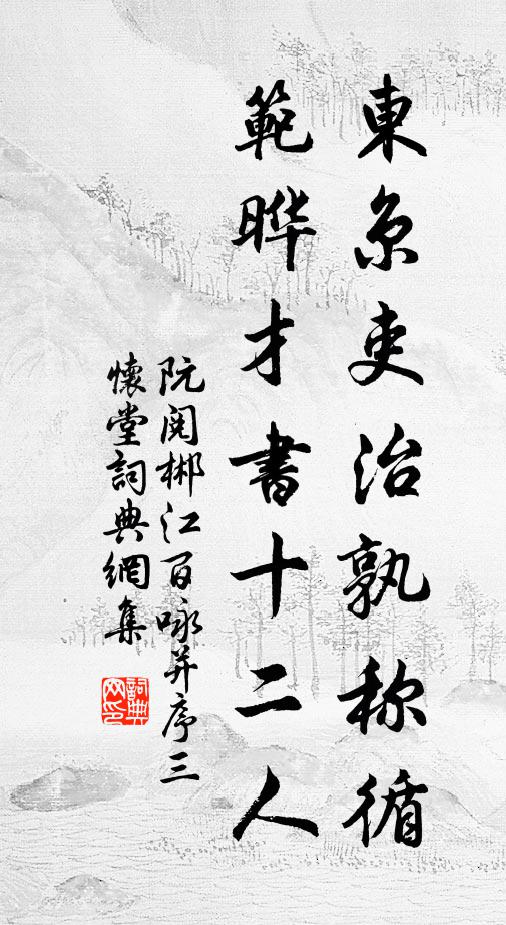 東京吏治孰称循
範晔才書十二人
阮閱郴江百咏并序三
懷堂詞典網集
詞典
网印